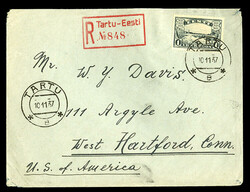 R Tartu-Eesti
№ 848
TARTU
10 11 37
Mr. W. Y. Davis.
TARTU
10 11 37
111 Argyle Ave.
West Hartford, Conn.
U. S. of America